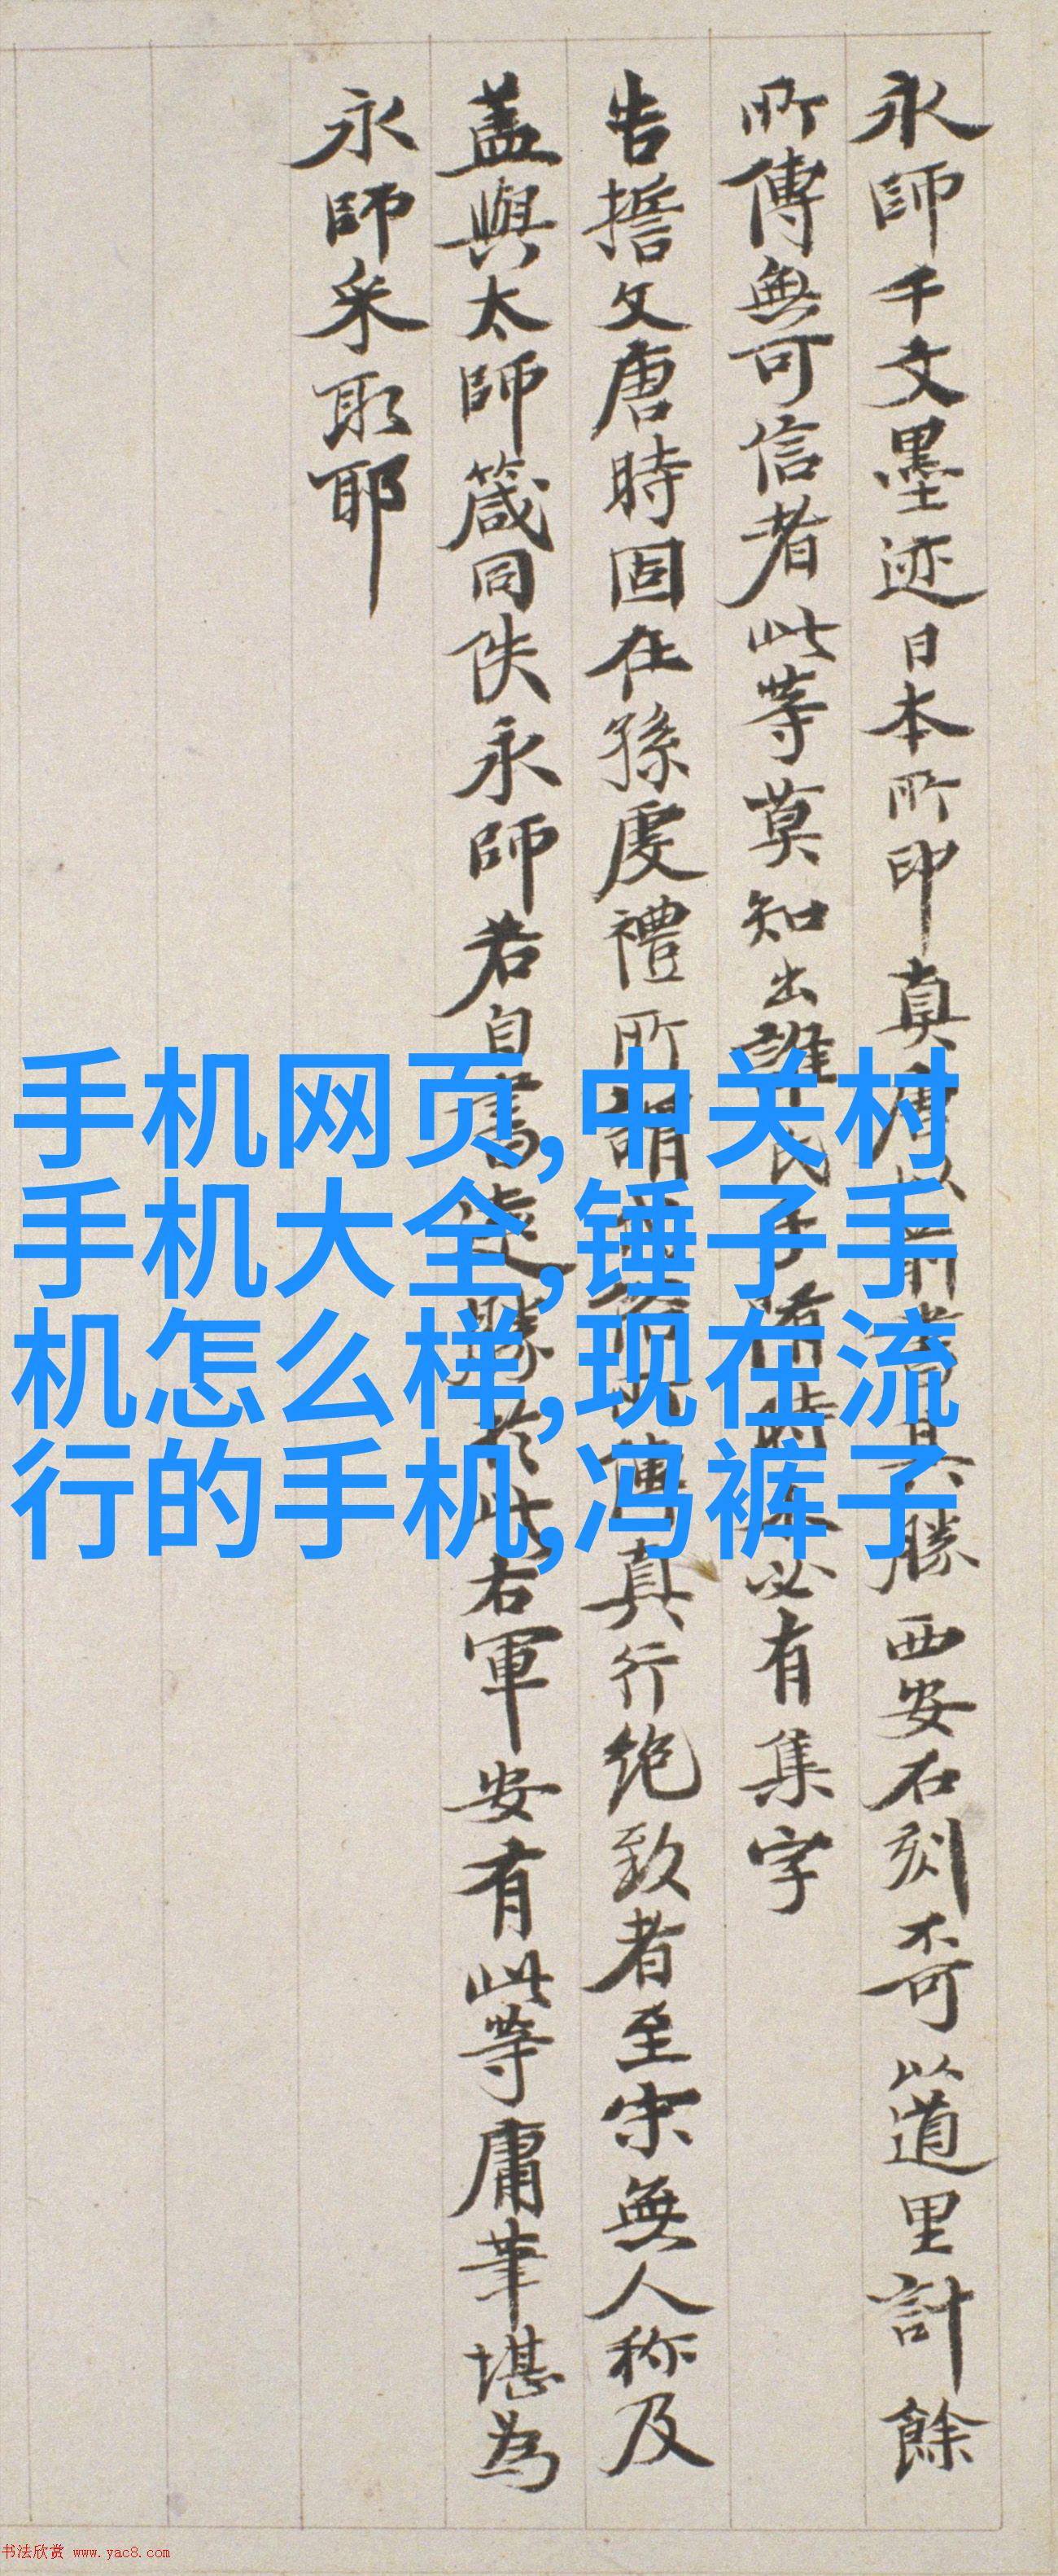 永師千文墨迹日本所印真唐以前書其勝西安石刻不可以道里計餘
所傳無可信者此等莫知出誰氏手隋時未必有集字
告擔文唐時固在孫虔禮所謂真行绝致者至宋無人称及
盖與太師箴同佚永師若自書遠勝於此右軍安有此等庸筆堪為
永師采取耶
手机网页,中关村
手机大全,锤子手
机怎么样,现在流
行的手机,冯裤子
书法欣赏 www.yac8.com